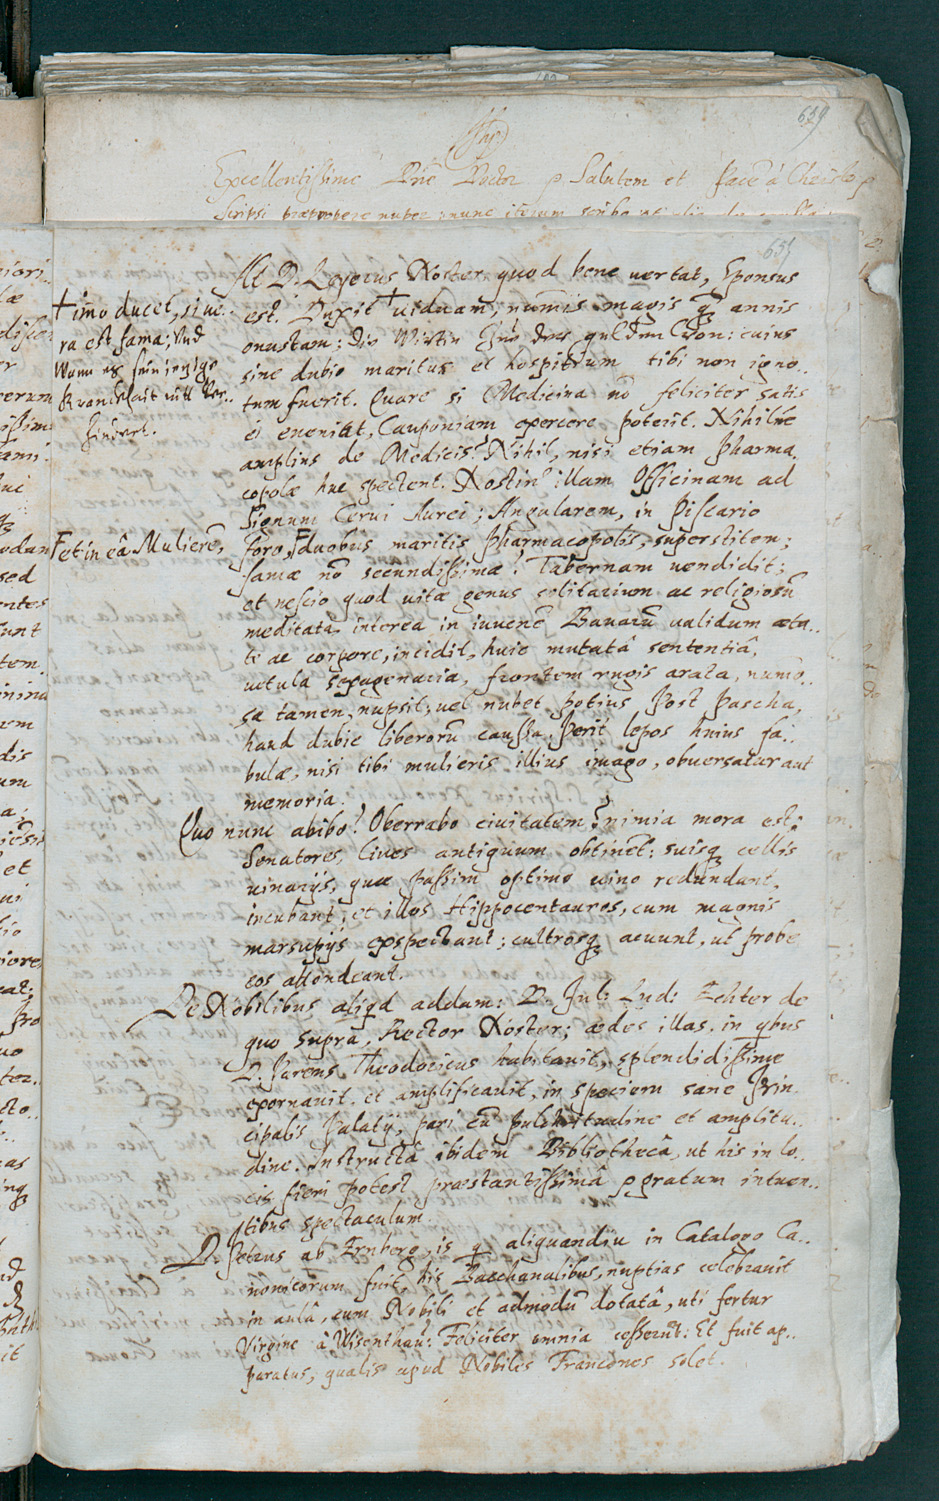 639
Excellentissime Dne Doctor p Salutem et pacem a Christo p
Scripsi præpropere nuper, nunc iterum scribo
655
At D. Legerus Noster quod bene vertat, Sponsus
est. Duxit † viduam, num̃is magis q̃ annis
onustam: die Wirtin Zue der gulden Cron: cuius
sine dubio maritus et hospitium tibi non igno..
tum fuerit. Quare si Medicina nõ feliciter satis
ei eveniat, Cauponiam exercere poterit. Nihilne
amplius de Medicis? Nihil, nisi etiam Pharma.
copolæ huc spectent. Nostin' illam Officinam ad
Signum Cervi Aurei; Angularem, in Piscario
foro, F duobus maritis Pharmacopolis, superstitem;
famæ nõ secundissimæ? Tabernam vendidit;
et nescio quod vitæ genus solitarium ac religiosũ
meditata. interea in iuvenẽ Bavarũ validum æta..
te ac corpore, incidit, huic mutatâ sententiâ,
vetula sexagenaria, frontem rugis arata, numo..
sa tamen, nupsit; vel nubet potius Post Pascha,
haud dubie liberorũ caussa. Perit lepos huius fa..
bulæ, nisi tibi mulieris illius imago, obversatur aut
memoria.
† imo ducet, si ve..
ra est fama; Und
Wann es sein ietzige
Kranckheit nitt Ver..
hindert.
F et in eâ Mulierẽ,
Quo nunc abibo? Oberrabo civitatem? nimia mora est.
Senatores, Cives antiquum obtinẽt: suisq; cellis
vinarijs, quæ passim optimo vino redundant,
incubant; et illos Hippocentauros, cum magnis
marsupijs exspectant; cultrosq; acuunt, ut probe
eos attondeant.
De Nobilibus aliq̃d addam: D. Jul: Lud: Echter de
quo supra, Rector Noster; ædes illas, in q̃bus
D. Parens Theodoricus habitavit, splendidissime
exornavit. et amplificavit, in speciem sane Prin.
cipalis Palatij, pari cũ pulchritudine et amplitu..
dine. Instructa ibidem Bibliotheca, ut his in lo..
cis fieri potest præstantissimâ p gratum intuen..
tibus spectaculum.
D. Petrus ab Ernberg, is q̃ aliquandiu in Catalogo Ca..
nonicorum fuit, his Bacchanalibus, nuptias celebravit
in aulâ, cum Nobili et admodũ dotatâ, uti fertur
Virgine à Wisenthau: Feliciter omnia cesserũt: Et fuit ap..
paratus, qualis apud Nobiles Francones solet.